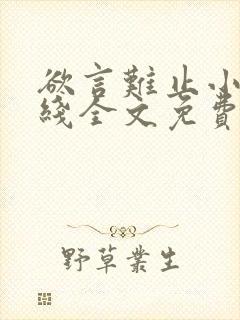 欲言難止小
綫全文免費
野草叢生